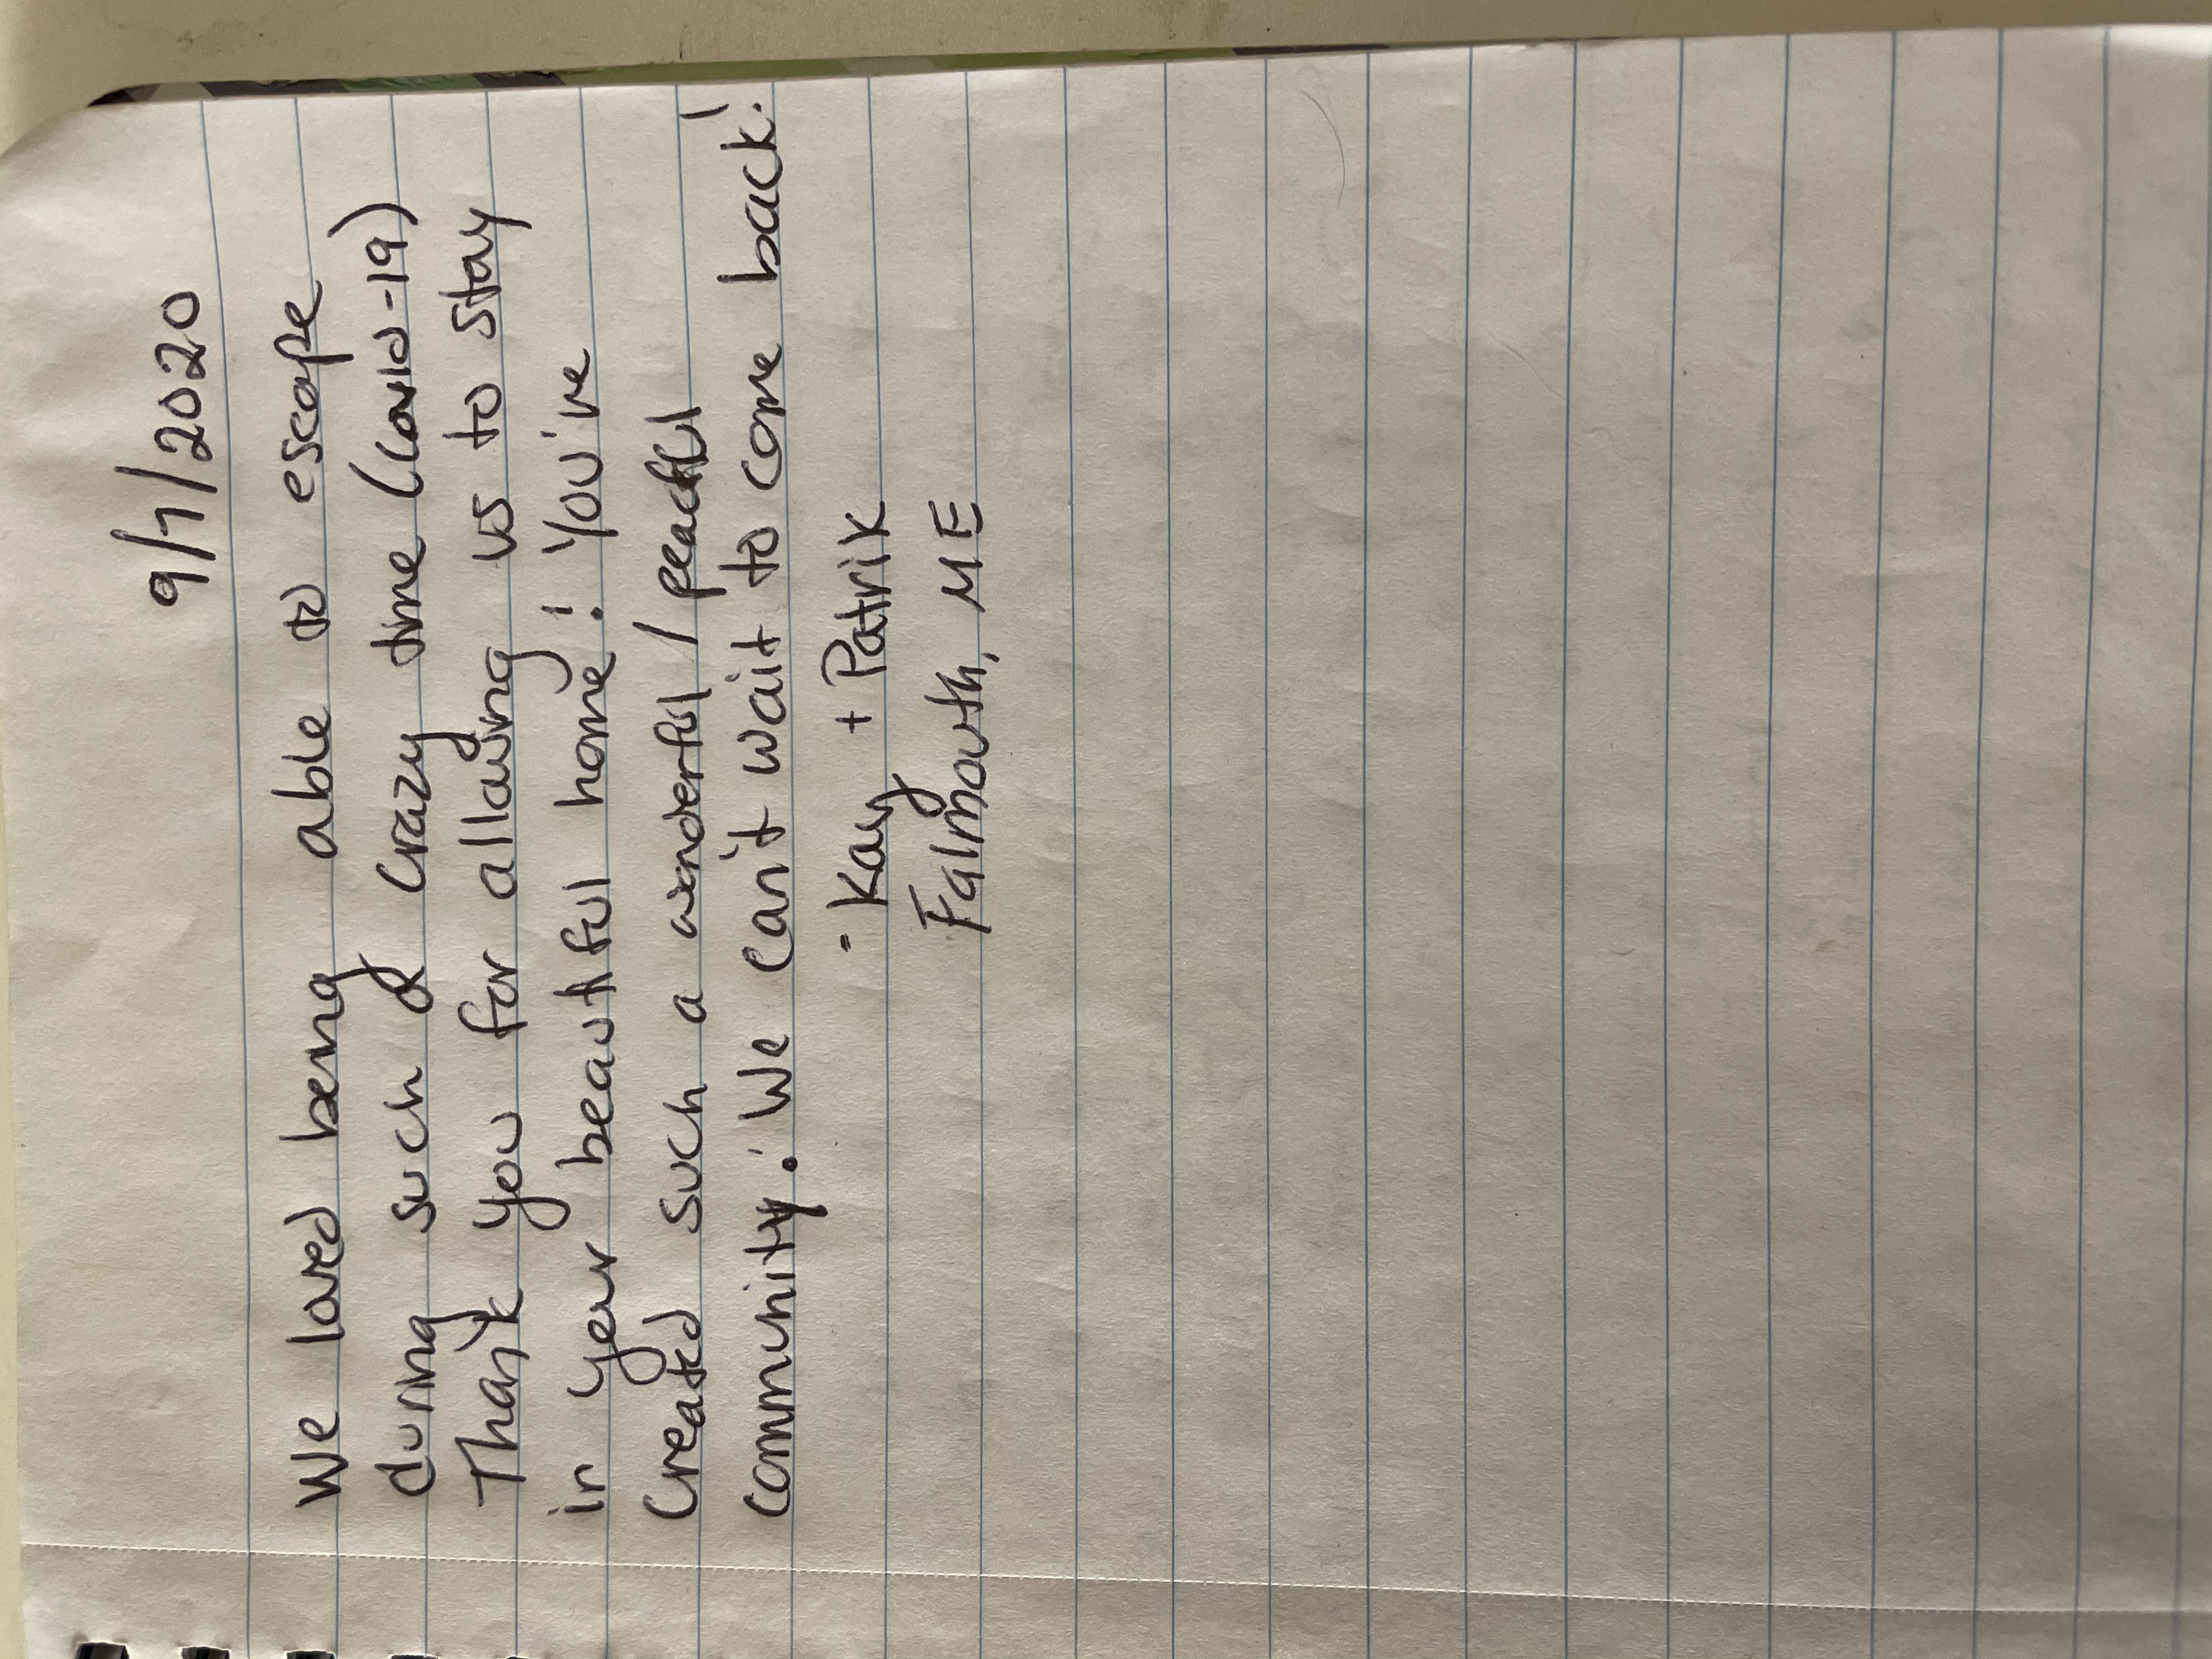 9/7/2020
We loved being able to escape
during such a crazy time (COVID-19)
Thank you for allowing us to stay
in your beautiful home! You've
created such a wonderful / peaceful
community! We can't wait to come back!
- Kay + Patrik
Falmouth, ME